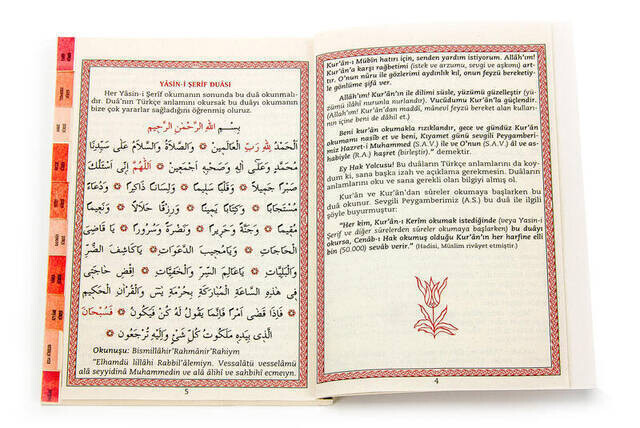 Kur'ân-ı Mübîn hatırı için, senden yardım istiyorum. Allâh'ım!
Kur'ân'a karşı rağbetimi (istek ve arzumu, sevgi ve aşkımı) art-
tır. O'nun nûru ile gözlerimi aydınlık kıl, onun feyzü bereketiy-
le gönlüme şifâ ver.
Allah'ım! Kur'ân'ın ile dilimi süsle, yüzümü güzelleştir (yü-
zümü ilâhî nurunla nurlandır). Vucûdumu Kur'an'la güçlendir.
(Allah'ım! Kur'an'ından meydana gelen mânevî feyzü bereket alan kulları-
nın içine beni de dâhil et.)
Beni kur'ân okumakla rızıklandır, gece ve gündüz Kur'ân
okumamı nasîb et ve beni, Kıyamet günü sevgili Peygamberi-
miz Hazret-i Muhammed (S.A.V.) ile ve O'nun (S.A.V.) âl ve as-
habiyle (R.A.) haşret (birleştir)." demektir.
Ey Hak Yolcusu! Bu duâların Türkçe anlamlarını da koy-
dum ki, sana başka izah ve açıklama gerekmesin. Duâların
anlamlarını oku ve sana gerekli olan bilgiyi almış ol.
Kur'ân ve Kur'an'dan sûreler okumaya başlarken bu
duâ okunur. Sevgili Peygamberimiz (A.S.) bu duâ ile ilgili
şöyle buyurmuştur:
"Her kim, Kur'ân-ı Kerîm okumak istediğinde (veya Yasin-i
Şerif ve diğer sûrelerden sûreler okumaya başlarken) bu duâyı
okursa, Cenâb-ı Hak okumuş olduğu Kur'ân'ın her harfine elli
bin (50.000) sevâb verir." (Hadisi, Müslim rivâyet etmiştir.)
4
YÂSİN-İ ŞERİF DUÂSI
Her Yâsin-i Şerîf okumanın sonunda bu duâ okunmalı-
dır. Duâ'nın Türkçe anlamını okursak bu duâyı okumanın
bize çok yararlar sağladığını öğrenmiş oluruz.
بِسْمِ اللهِ الرَّحْمٰنِ الرَّحِيمِ
اَلْحَمْدُ لِلّٰهِ رَبِّ الْعَالَمِينَ ۞ وَالصَّلَاةُ وَالسَّلَامُ عَلٰى سَيِّدِنَا
مُحَمَّدٍ وَعَلٰى اٰلِهِ وَصَحْبِهِ اَجْمَعِينَ ۞ اَللّٰهُمَّ اِنِّي اَسْئَلُكَ
صَبْرًا جَمِيلًا ۞ وَقَلْبًا سَلِيمًا ۞ وَلِسَانًا ذَاكِرًا ۞ وَدُعَاءً
مُسْتَجَابًا ۞ وَكِتَابًا يَمِينًا ۞ وَرِزْقًا حَلَالًا ۞ وَنَعِيمًا
مُقِيمًا ۞ وَجَنَّةً وَحَرِيرًا ۞ وَنَضْرَةً وَسُرُورًا ۞ يَا قَاضِيَ
الْحَاجَاتِ ۞ وَيَامُجِيبَ الدَّعَوَاتِ ۞ يَاكَاشِفَ الضُّرِّ
وَالْبَلِيَّاتِ ۞ يَاعَالِمَ السِّرِّ وَالْخَفِيَّاتِ ۞ اِقْضِ حَاجَتِي
فِي هٰذِهِ السَّاعَةِ الْمُبَارَكَةِ بِحُرْمَةِ يٰسٓ وَالْقُرْاٰنِ الْحَكِيمِ
۞ فَاِذَا قَضٰى اَمْرًا فَاِنَّمَا يَقُولُ لَهُ كُنْ فَيَكُونُ ۞ فَسُبْحَانَ
الَّذِي بِيَدِهِ مَلَكُوتُ كُلِّ شَيْءٍ وَاِلَيْهِ تُرْجَعُونَ ۞
Okunuşu: Bismillâhir'Rahmânir'Rahiym
"Elhamdü lillâhi Rabbil'âlemiyn. Vessalâtü vesselâmü
alâ seyyidinâ Muhammedin ve alâ âlihî ve sahbihî ecmeıyn.
5